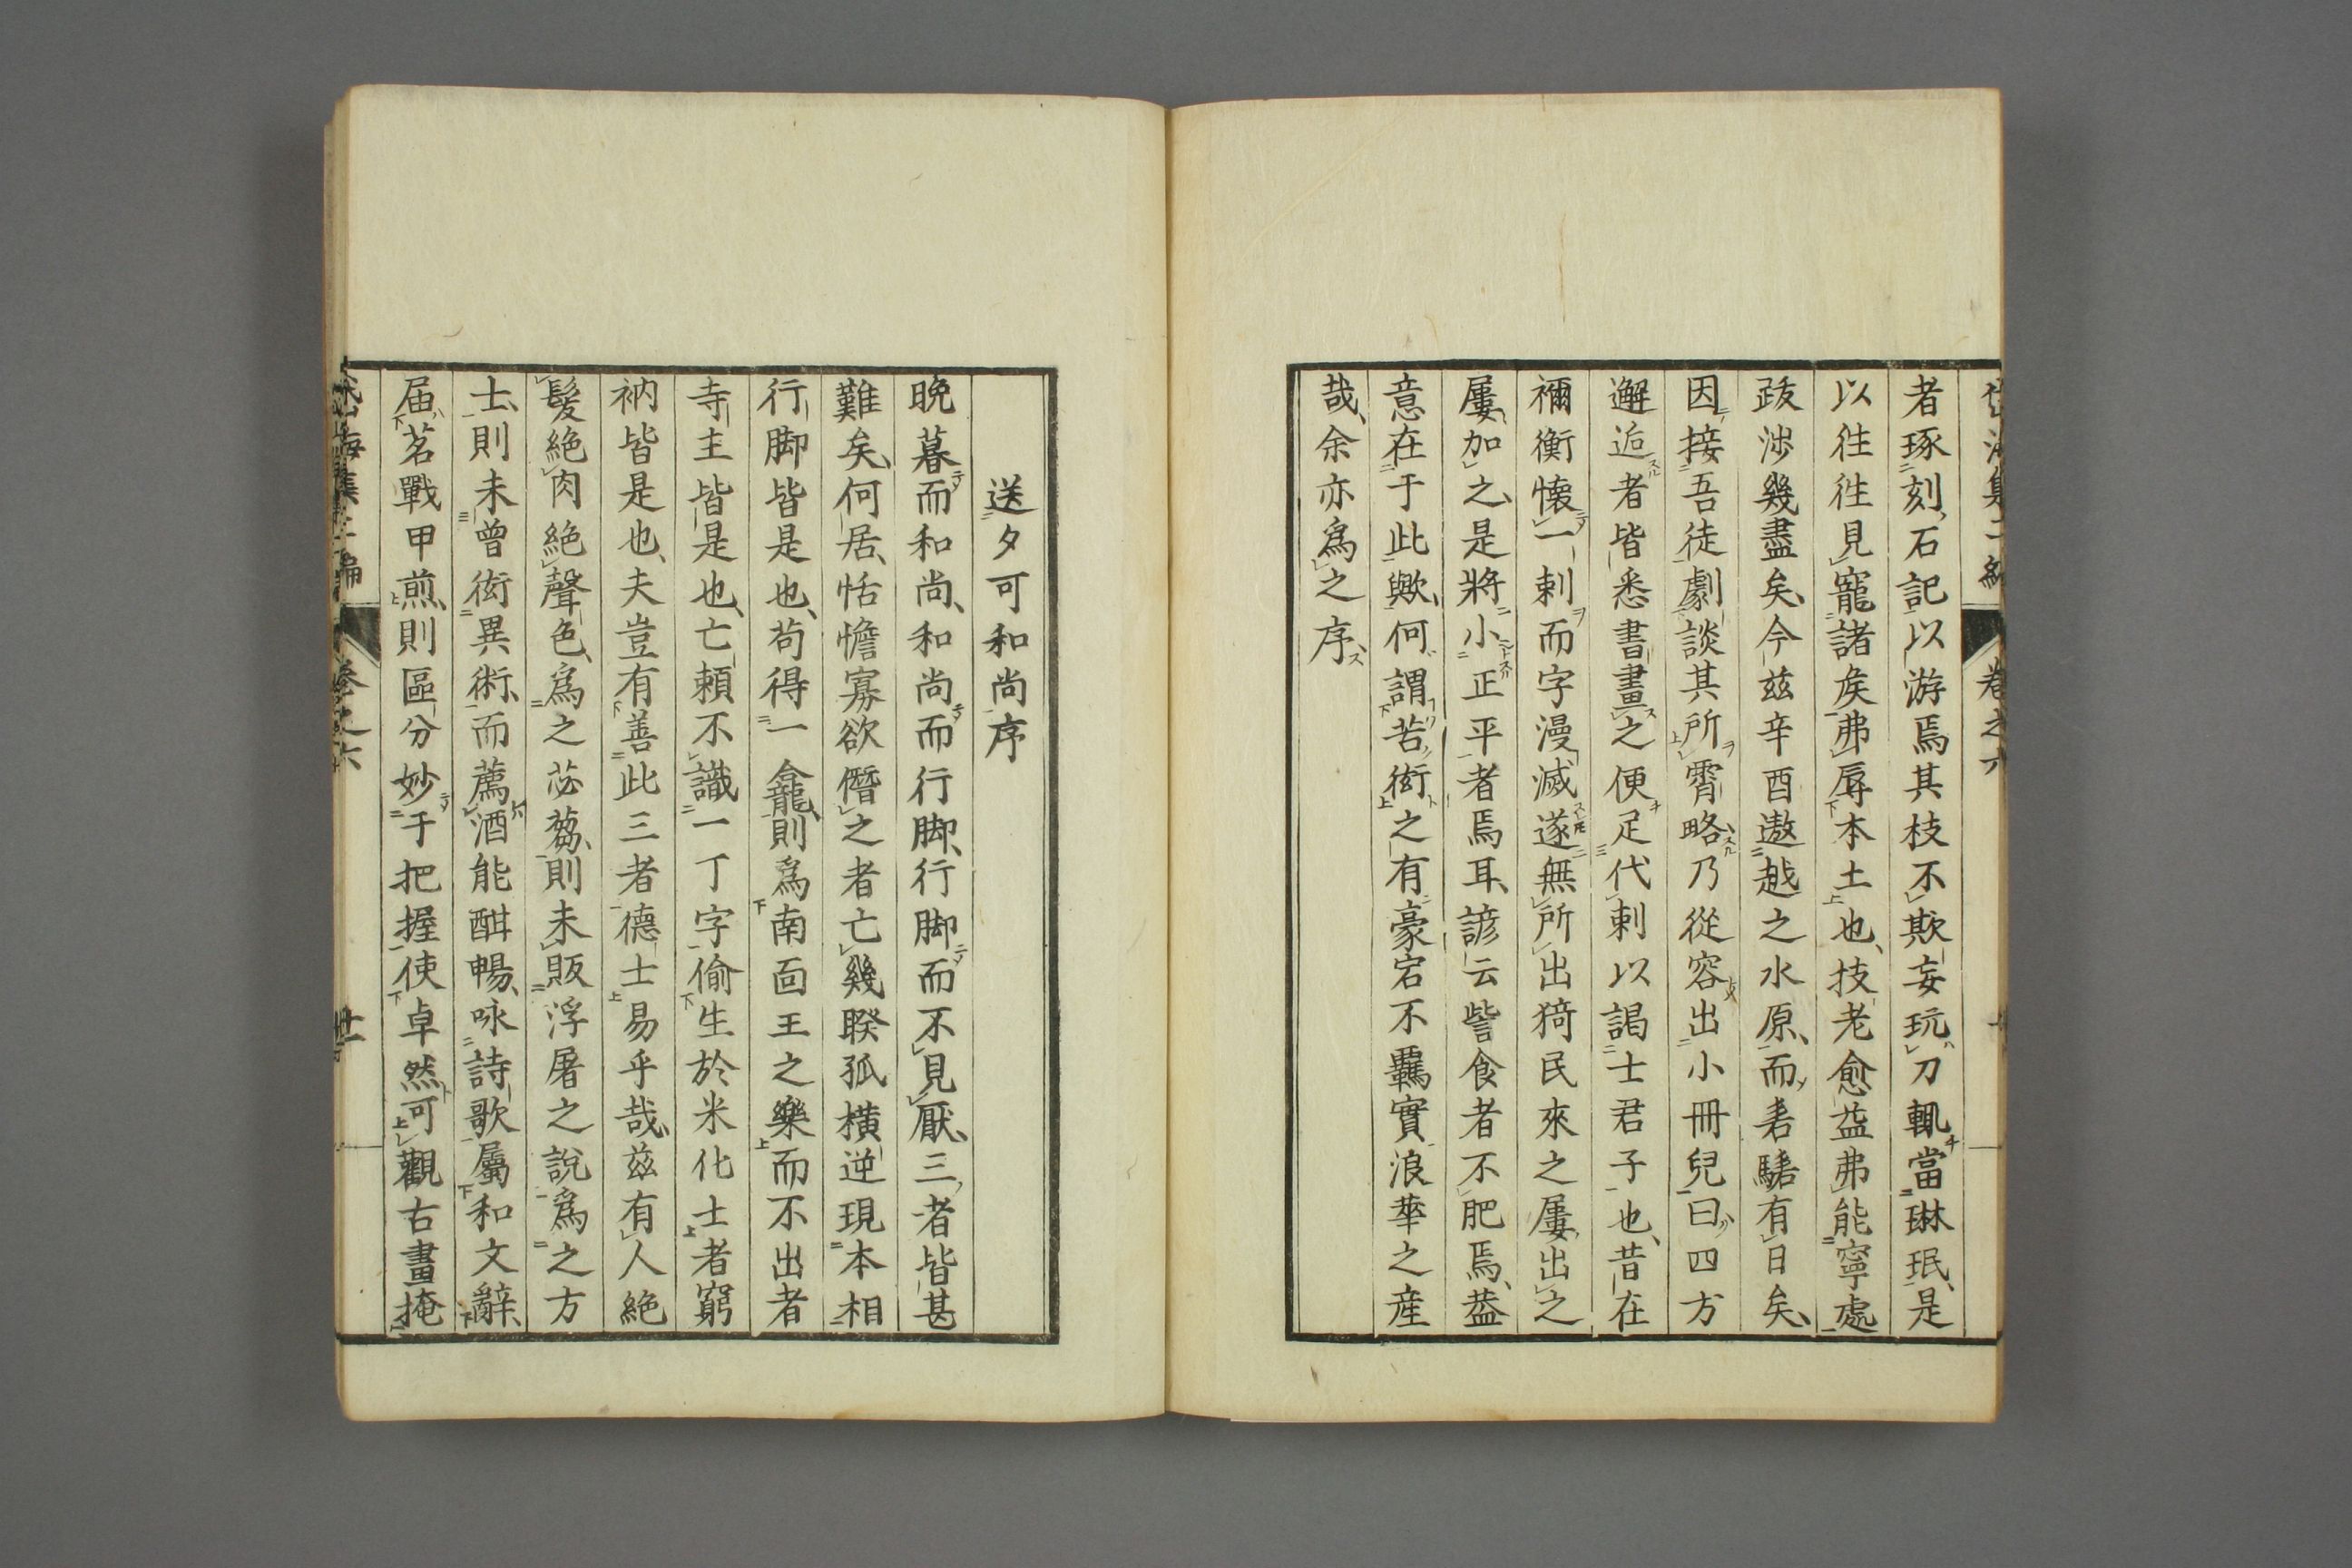 者琢刻石記以游焉其枝不欺妄玩刀輒當琳珉是
以徃徃見寵諸矦弗辱本土也技老愈益弗能寧處
跋渉幾盡矣今茲辛酉遨越之水原而耒騞有日矣
因接吾徒劇談其所霄略乃從容出小冊兒曰四方
邂逅者皆悉書畫之便足代刺以謁士君子也昔在
禰衡懷一刺而字漫滅遂無所出猗民來之屢出之
屢加之是將小正平者焉耳諺云訾食者不肥焉葢
意在于此歟何謂苦衒之有豪宕不羈實浪華之產
哉余亦爲之序
送夕可和尚序
晚暮而和尚和尚而行脚行脚而不見厭三者皆甚
難矣何居恬憺寡欲僭之者亡幾睽孤橫逆現本相
行脚皆是也苟得一龕則爲南面王之樂而不出者
寺主皆是也亡賴不識一丁字偷生於米化士者窮
衲皆是也夫豈有善此三者德士易乎哉茲有人絕
髮絕肉絕聲色爲之苾蒭則未販浮屠之說爲之方
士則未曾衒異術而薦酒能酣暢咏詩歌屬和文辭
届茗戰甲煎則區分妙于把握使卓然可觀古畫掩
卷之六